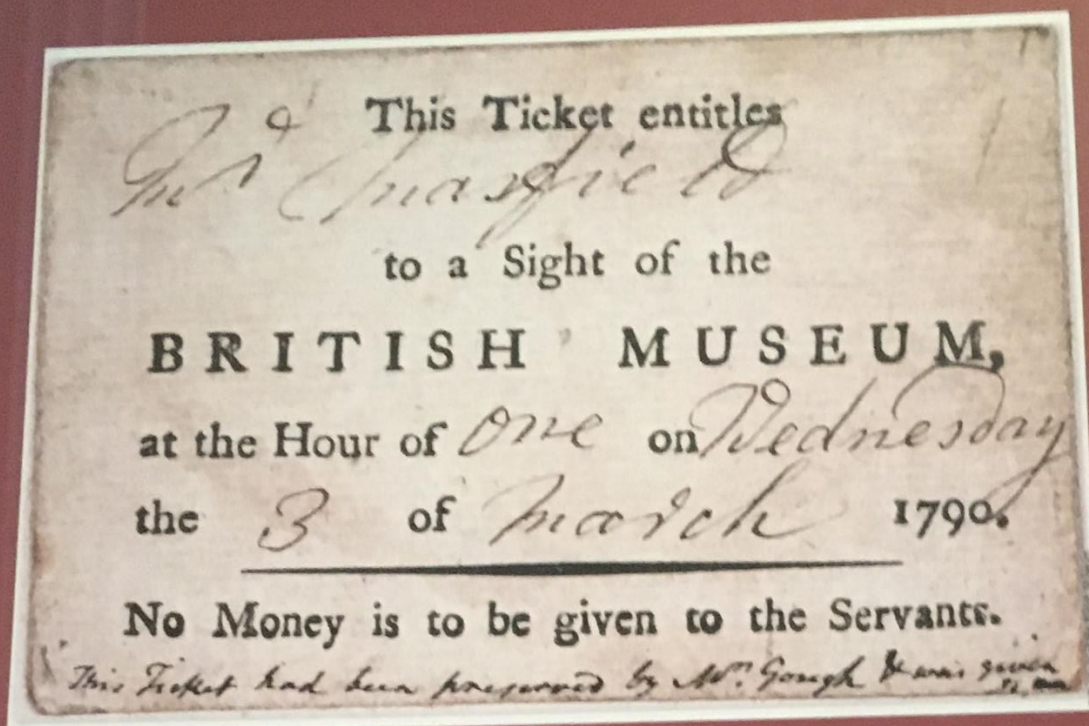 This Ticket entitles
Mr
to a Sight of the
BRITISH MUSEUM,
at the Hour of One on Wednesday
the 3 of March 1790.
No Money is to be given to the Servants.
This Ticket had been preserved by Mr. Gough & was given